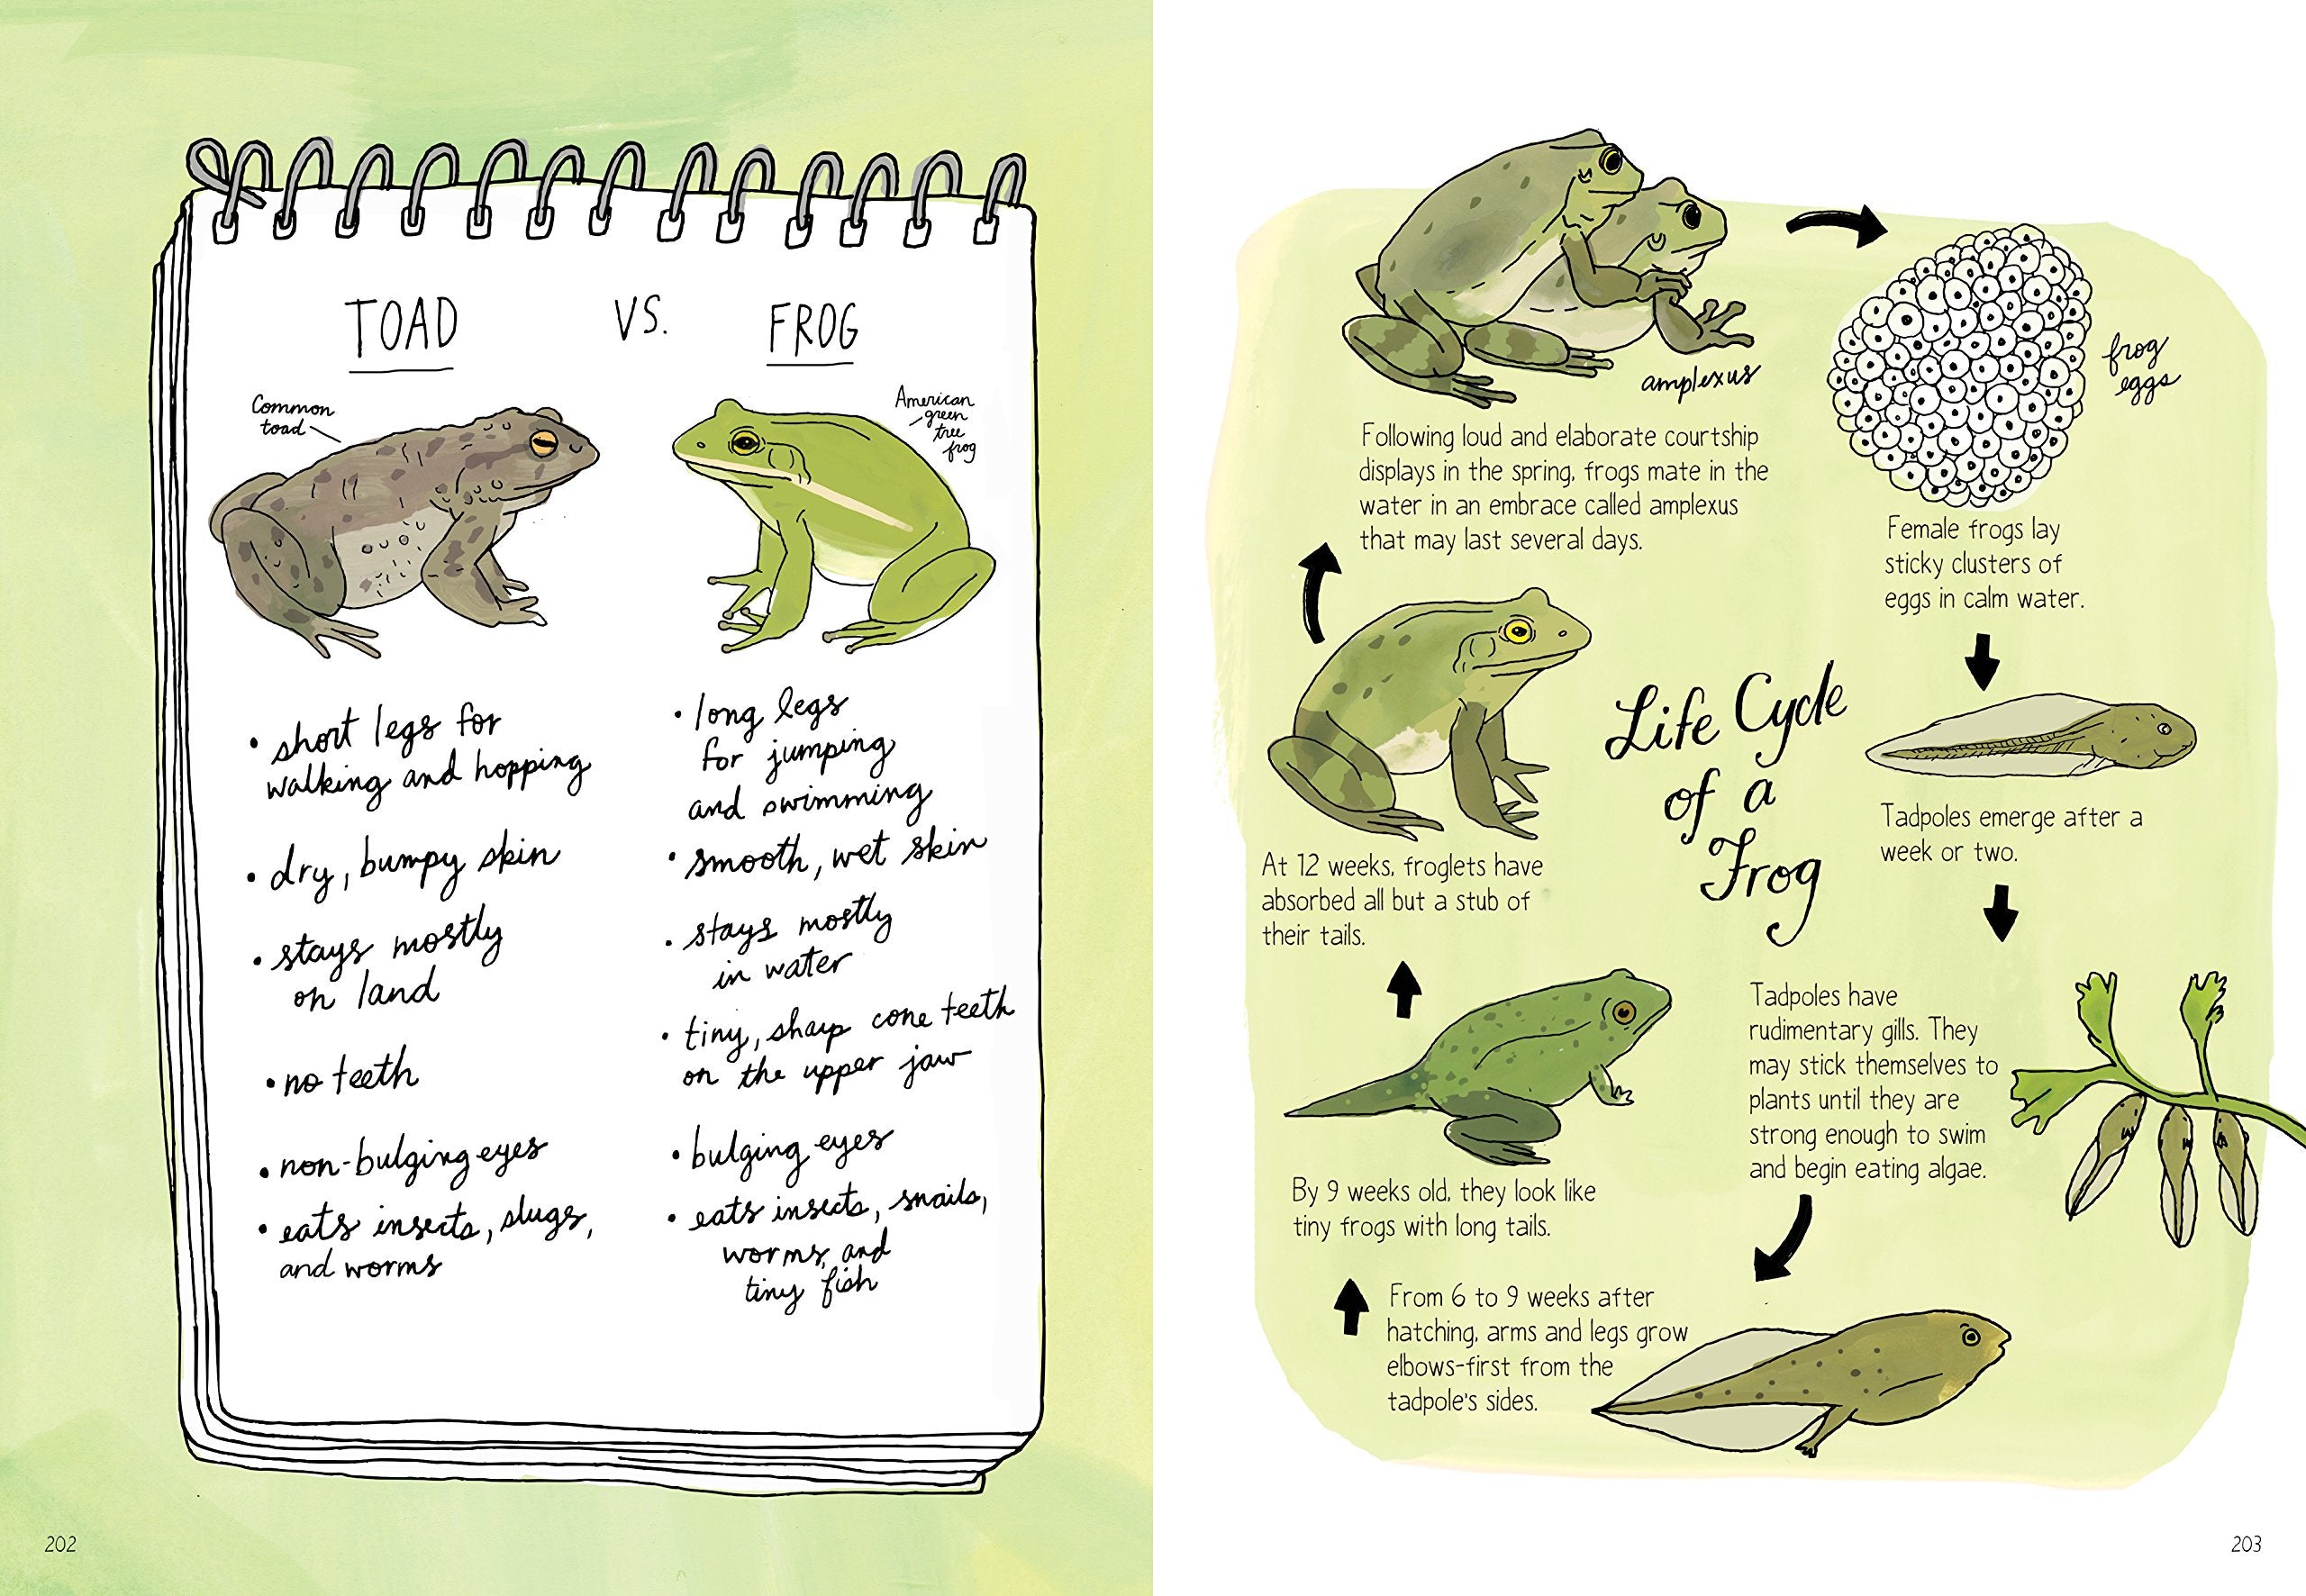 TOAD VS. FROG
Common
toad
American
green
tree
frog
• short legs for
walking and hopping
• dry, bumpy skin
• stays mostly
on land
• no teeth
• non-bulging eyes
• eats insects, slugs,
and worms
• long legs
for jumping
and swimming
• smooth, wet skin
• stays mostly
in water
• tiny, sharp cone teeth
on the upper jaw
• bulging eyes
• eats insects, snails,
worms, and
tiny fish
202
Life Cycle
of a
Frog
amplexus
Following loud and elaborate courtship
displays in the spring, frogs mate in the
water in an embrace called amplexus
that may last several days.
frog
eggs
Female frogs lay
sticky clusters of
eggs in calm water.
Tadpoles emerge after a
week or two.
Tadpoles have
rudimentary gills. They
may stick themselves to
plants until they are
strong enough to swim
and begin eating algae.
From 6 to 9 weeks after
hatching, arms and legs grow
elbows-first from the
tadpole's sides.
By 9 weeks old, they look like
tiny frogs with long tails.
At 12 weeks, froglets have
absorbed all but a stub of
their tails.
203